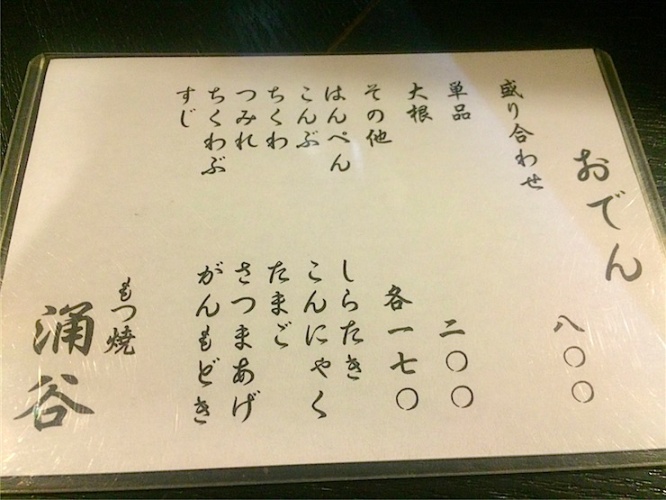 おでん
盛り合わせ 八〇〇
単品
大根 二〇〇
その他 各一七〇
はんぺん しらたき
こんぶ こんにゃく
ちくわ たまご
つみれ さつまあげ
ちくわぶ がんもどき
すじ
もつ焼
涌谷